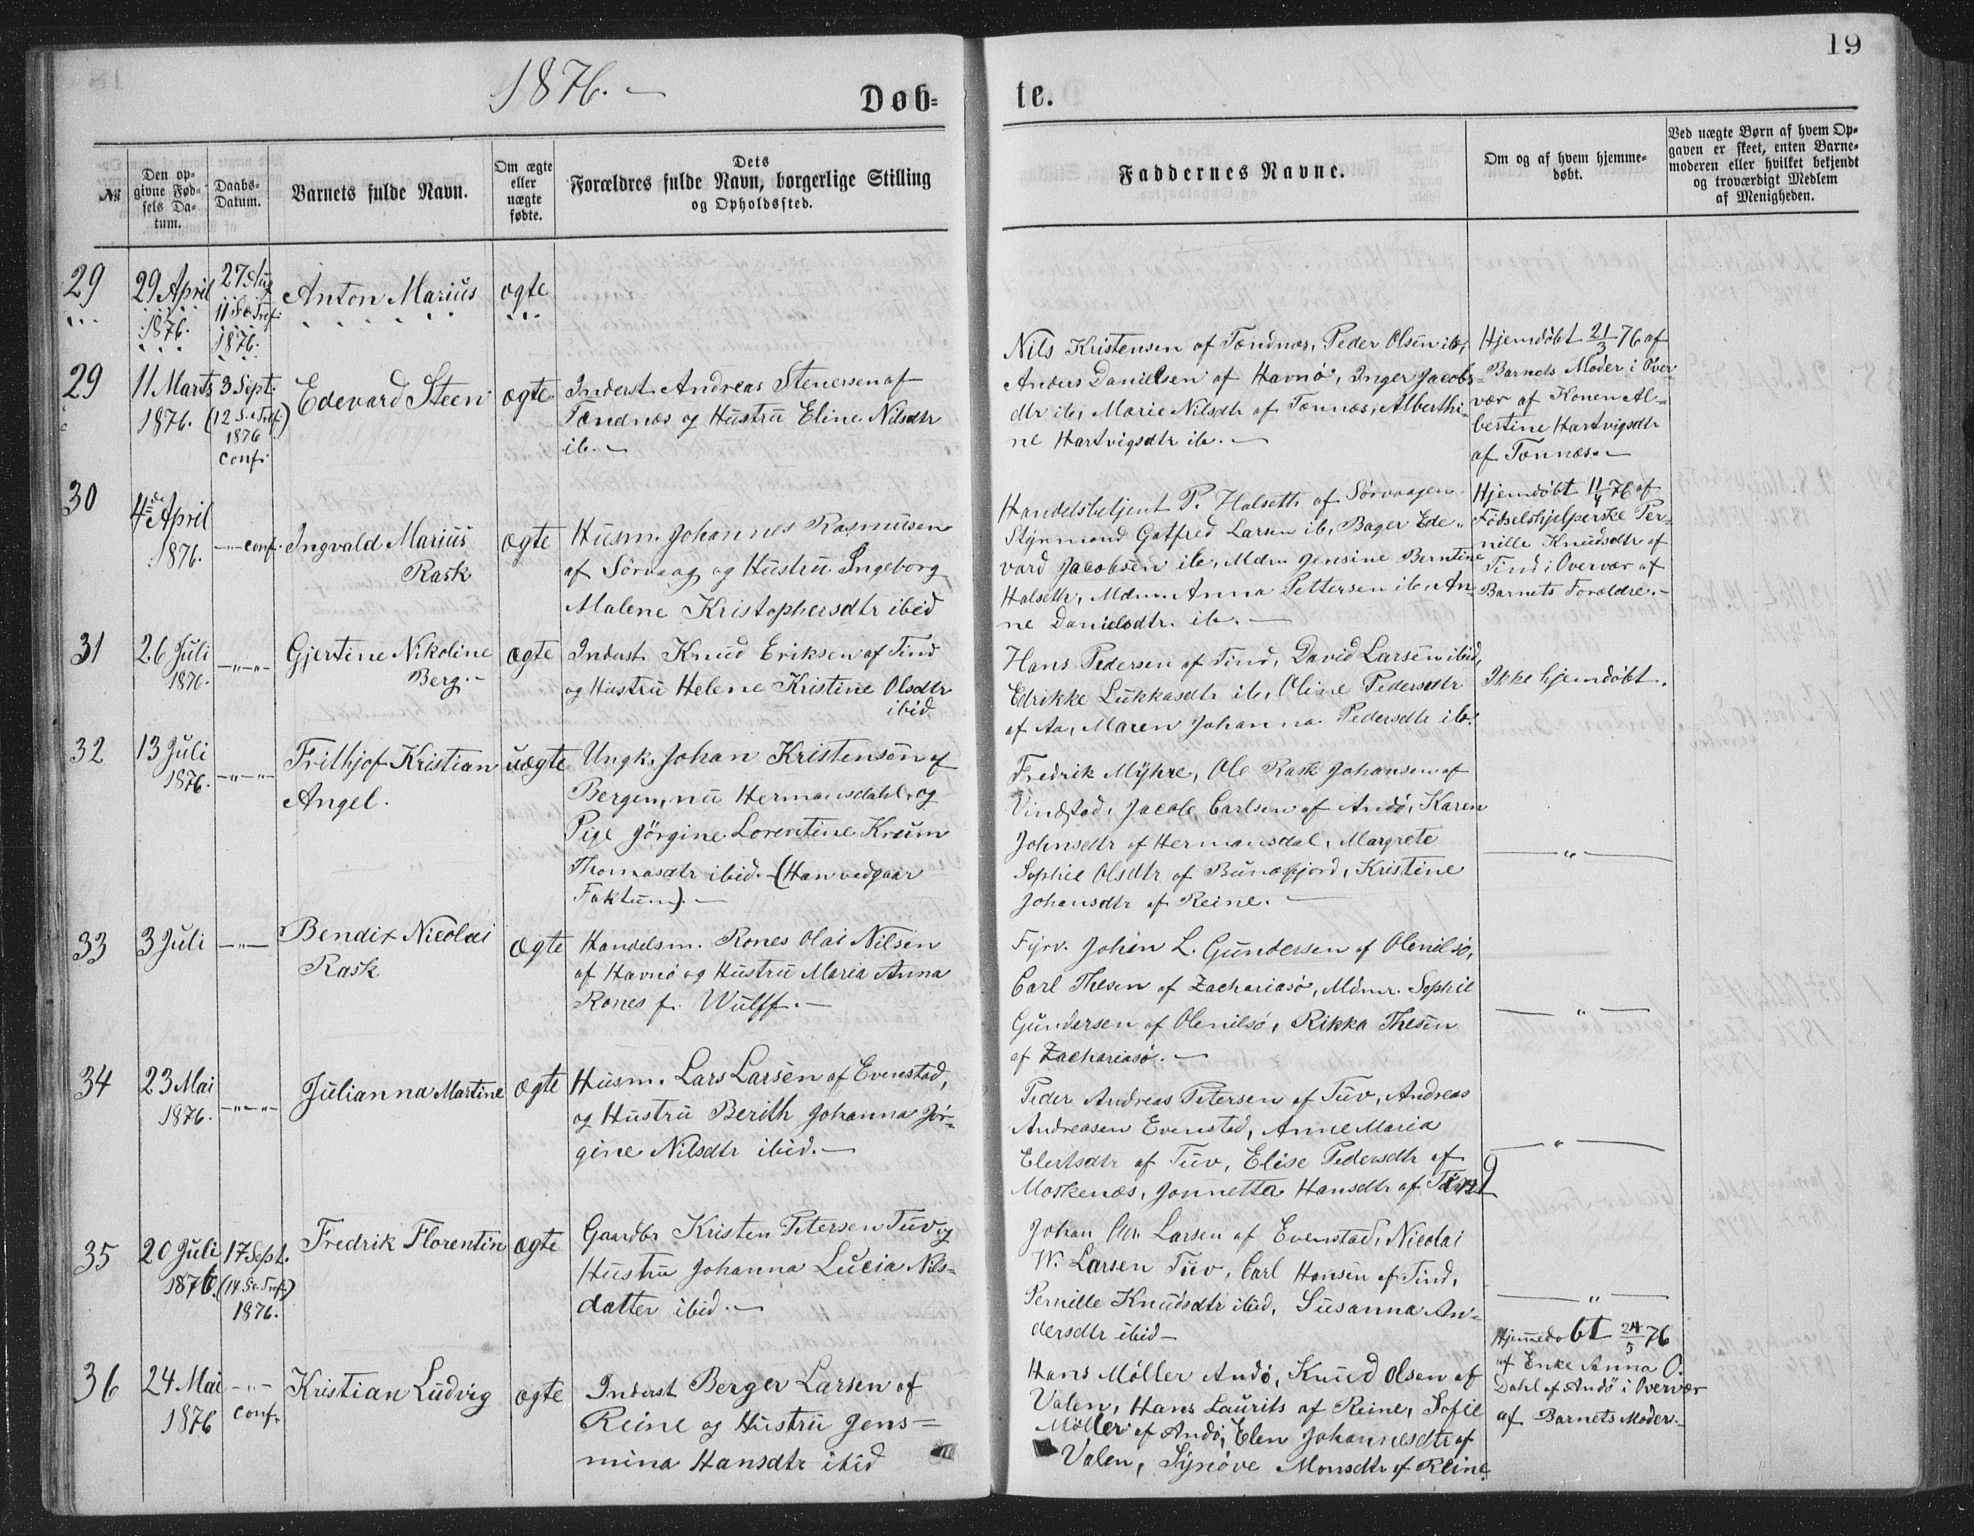 19
1876. —
Døb=
te.
№
Den op-
givne Fød-
sels Da-
tum.
Daabs-
Datum.
Barnets fulde Navn.
Om ægte
eller
uægte
fødte.
Dets
Forældres fulde Navn, borgerlige Stilling
og Opholdssted.
Faddernes Navne.
Om og af hvem hjemme-
døbt.
Ved uægte Børn af hvem Op-
gaven er skeet, enten Barne-
moderen eller hvilket bekjendt
og troværdigt Medlem
af Menigheden.
29
29 April
1876.
27 Aug
11 S. e. Tref.
1876.
Anton Marius
ægte
29
11 Marts
1876.
3 Sept.
(12 S. e. Tref.)
1876
conf.
Edevard Steen
ægte
Inderst. Andreas Stenersen af
Tændnæs og Hustru Eline Nilsdtr
ib. —
Nils Kristensen af Tændnæs, Peder Olsen ib,
Anders Danielsen af Havnø, Inger Jacobs-
dtr ib, Marie Nilsdtr af Tænnæs, Alberthi-
ne Hartvigsdtr ib. —
Hjemdøbt 21/3 76 af
Barnets Moder i Over-
vær af Konen Al-
bertine Hartvigsdtr
af Tønnæs. —
30
4de April
1876.
—"— conf.
Ingvald Marius
Rask
ægte
Husm. Johannes Rasmusen
af Sørvaag og Hustru Ingeborg
Malene Kristophersdtr ibid
Handelsbetjent P. Halseth af Sørvaagen
Styrmand Gotfred Larsen ib, Bager Ede-
vard Jacobsen ib, Mdm Jensine Berntine
Halseth, Mdm. Anna Pettersen ib, An-
ne Danielsdtr. ib. —
Hjemdøbt 11/4 76 af
Fødselshjelperske Per-
nille Knudsdtr af
Tind i Overvær af
Barnets Forældre. —
31
26 Juli
1876.
—"—"—
Gjertine Nikoline
Berg. —
ægte
Inderst. Knud Eriksen af Tind
og Hustru Helene Kristine Olsdtr
ibid
Hans Pedersen af Tind, David Larsen ibid,
Edrikke Lukkasdtr ib, Oline Pedersdtr
af Aa, Maren Johanna Pedersdtr ib.
Ikke hjemdøbt.
32
13 Juli
1876.
—"—"—
Frithjof Kristian
Angel.
uægte
Ungk. Johan Kristensen af
Bergen, nu Hermansdahl, og
Pige Jörgine Lorentine Krum
Thomasdtr ibid. — (Han vedgaar
Faktum). —
Fredrik Myhre, Ole Rask Johansen af
Vindstad, Jacob Carlsen af Andø, Karen
Johnsdtr af Hermansdal, Margrete
Sophie Olsdtr af Bunesfjord, Kristine
Johansdtr af Reine. —
— " —
33
3 Juli
—"—
Bendix Nicolai
Rask
ægte
Handelsm. Rones Olai Nilsen
af Havnø og Hustru Maria Anna
Rones f. Wulff. —
Fyrv. Johan L. Gundersen af Olenilsø,
Carl Thesen af Zachariasø, Mdmr. Sophie
Gundersen af Olenilsø, Rikka Thesen
af Zachariasø. —
— " —
34
23 Mai
1876.
—"—"—
Julianna Martine
ægte
Husm. Lars Larsen af Evenstad,
og Hustru Berith Johanna Jør-
gine Nilsdtr ibid. —
Peder Andreas Petersen af Tuv, Andreas
Andreasen Evenstad, Anne Maria
Elertsdtr af Tuv, Elise Pedersdtr af
Moskenæs, Jonnetta Hansdtr af
— " —
35
20 Juli
1876.
17 Sept.
(14 S. e. Tref.)
1876.
Fredrik Florentin
ægte
Gaardbr Kristen Petersen Tuv og
Hustru Johanna Lucia Nils-
datter ibid. —
Johan Larsen af Evenstad, Nicolai
W. Larsen Tuv, Carl Hansen af Tind,
Pernille Knudsdtr ibid, Susanna An-
dersdtr ibid —
— " —
36
24 Mai
1876
—"—
conf.
Kristian Ludvig
ægte
Inderst Berger Larsen af
Reine og Hustru Jens=
mina Hansdtr ibid
Hans Møller Andø, Knud Olsen af
Valen, Hans Laurits af Reine, Sofie
Møller af Andø, Elen Johannesdtr af
Valen, Synøve Monsdtr af Reine
Hjemmedøbt 24/5 76
af Enke Anna O.
Dahl af Andø i Overvær
af Barnets Moder. —